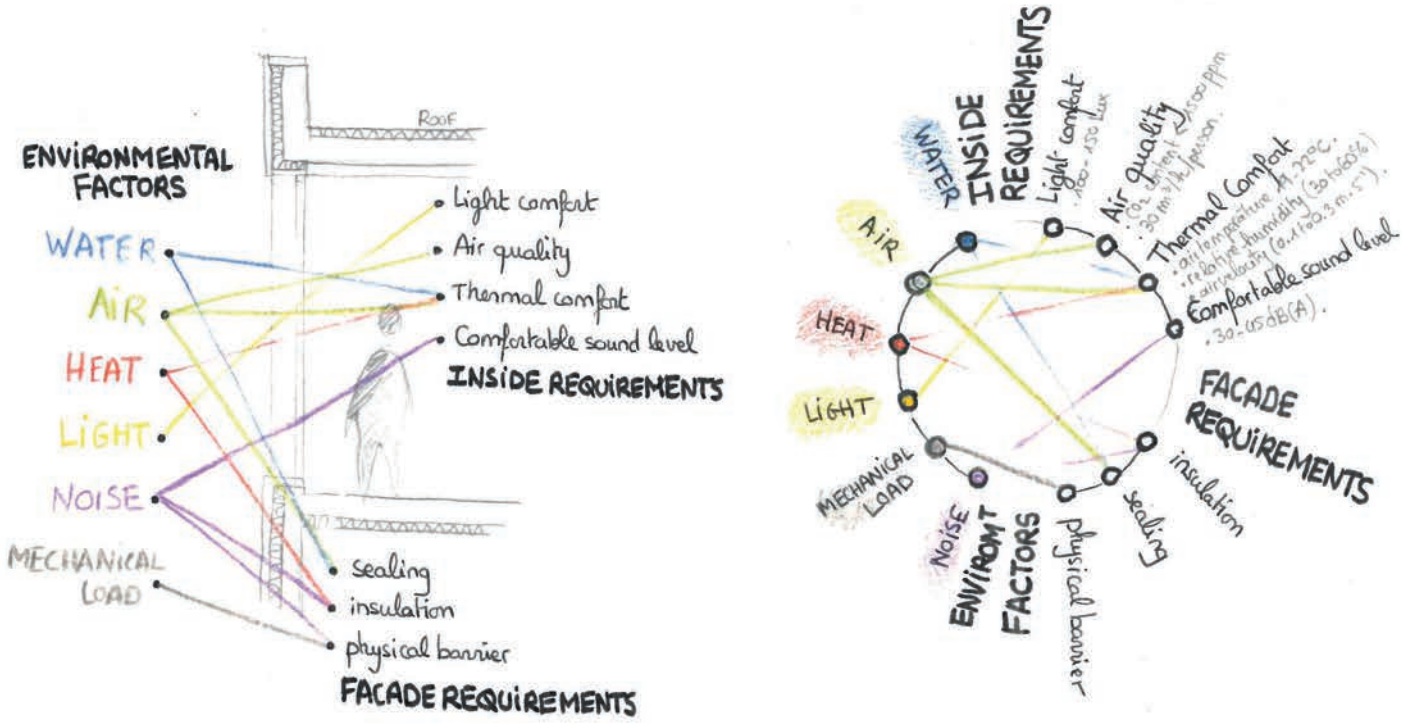 ROOF
ENVIRONMENTAL
FACTORS
WATER
AIR
HEAT
LIGHT
NOISE
MECHANICAL
LOAD
Light comfort
Air quality
Thermal comfort
Comfortable sound level
INSIDE REQUIREMENTS
sealing
insulation
physical barrier
FACADE REQUIREMENTS
WATER
AIR
HEAT
LIGHT
MECHANICAL
LOAD
NOISE
ENVIROMT
FACTORS
INSIDE
REQUIREMENTS
Light comfort
. 100 - 150 Lux
Air quality
. CO2 content < 1500 ppm
. 30 m³/h/person.
Thermal Comfort
. air temperature 19-22°C.
. relative humidity (30 to 60%)
. air velocity (0.1 to 0.3 m.s⁻¹).
Comfortable sound level
. 30-45 dB(A).
FACADE
REQUIREMENTS
insulation
sealing
physical barrier